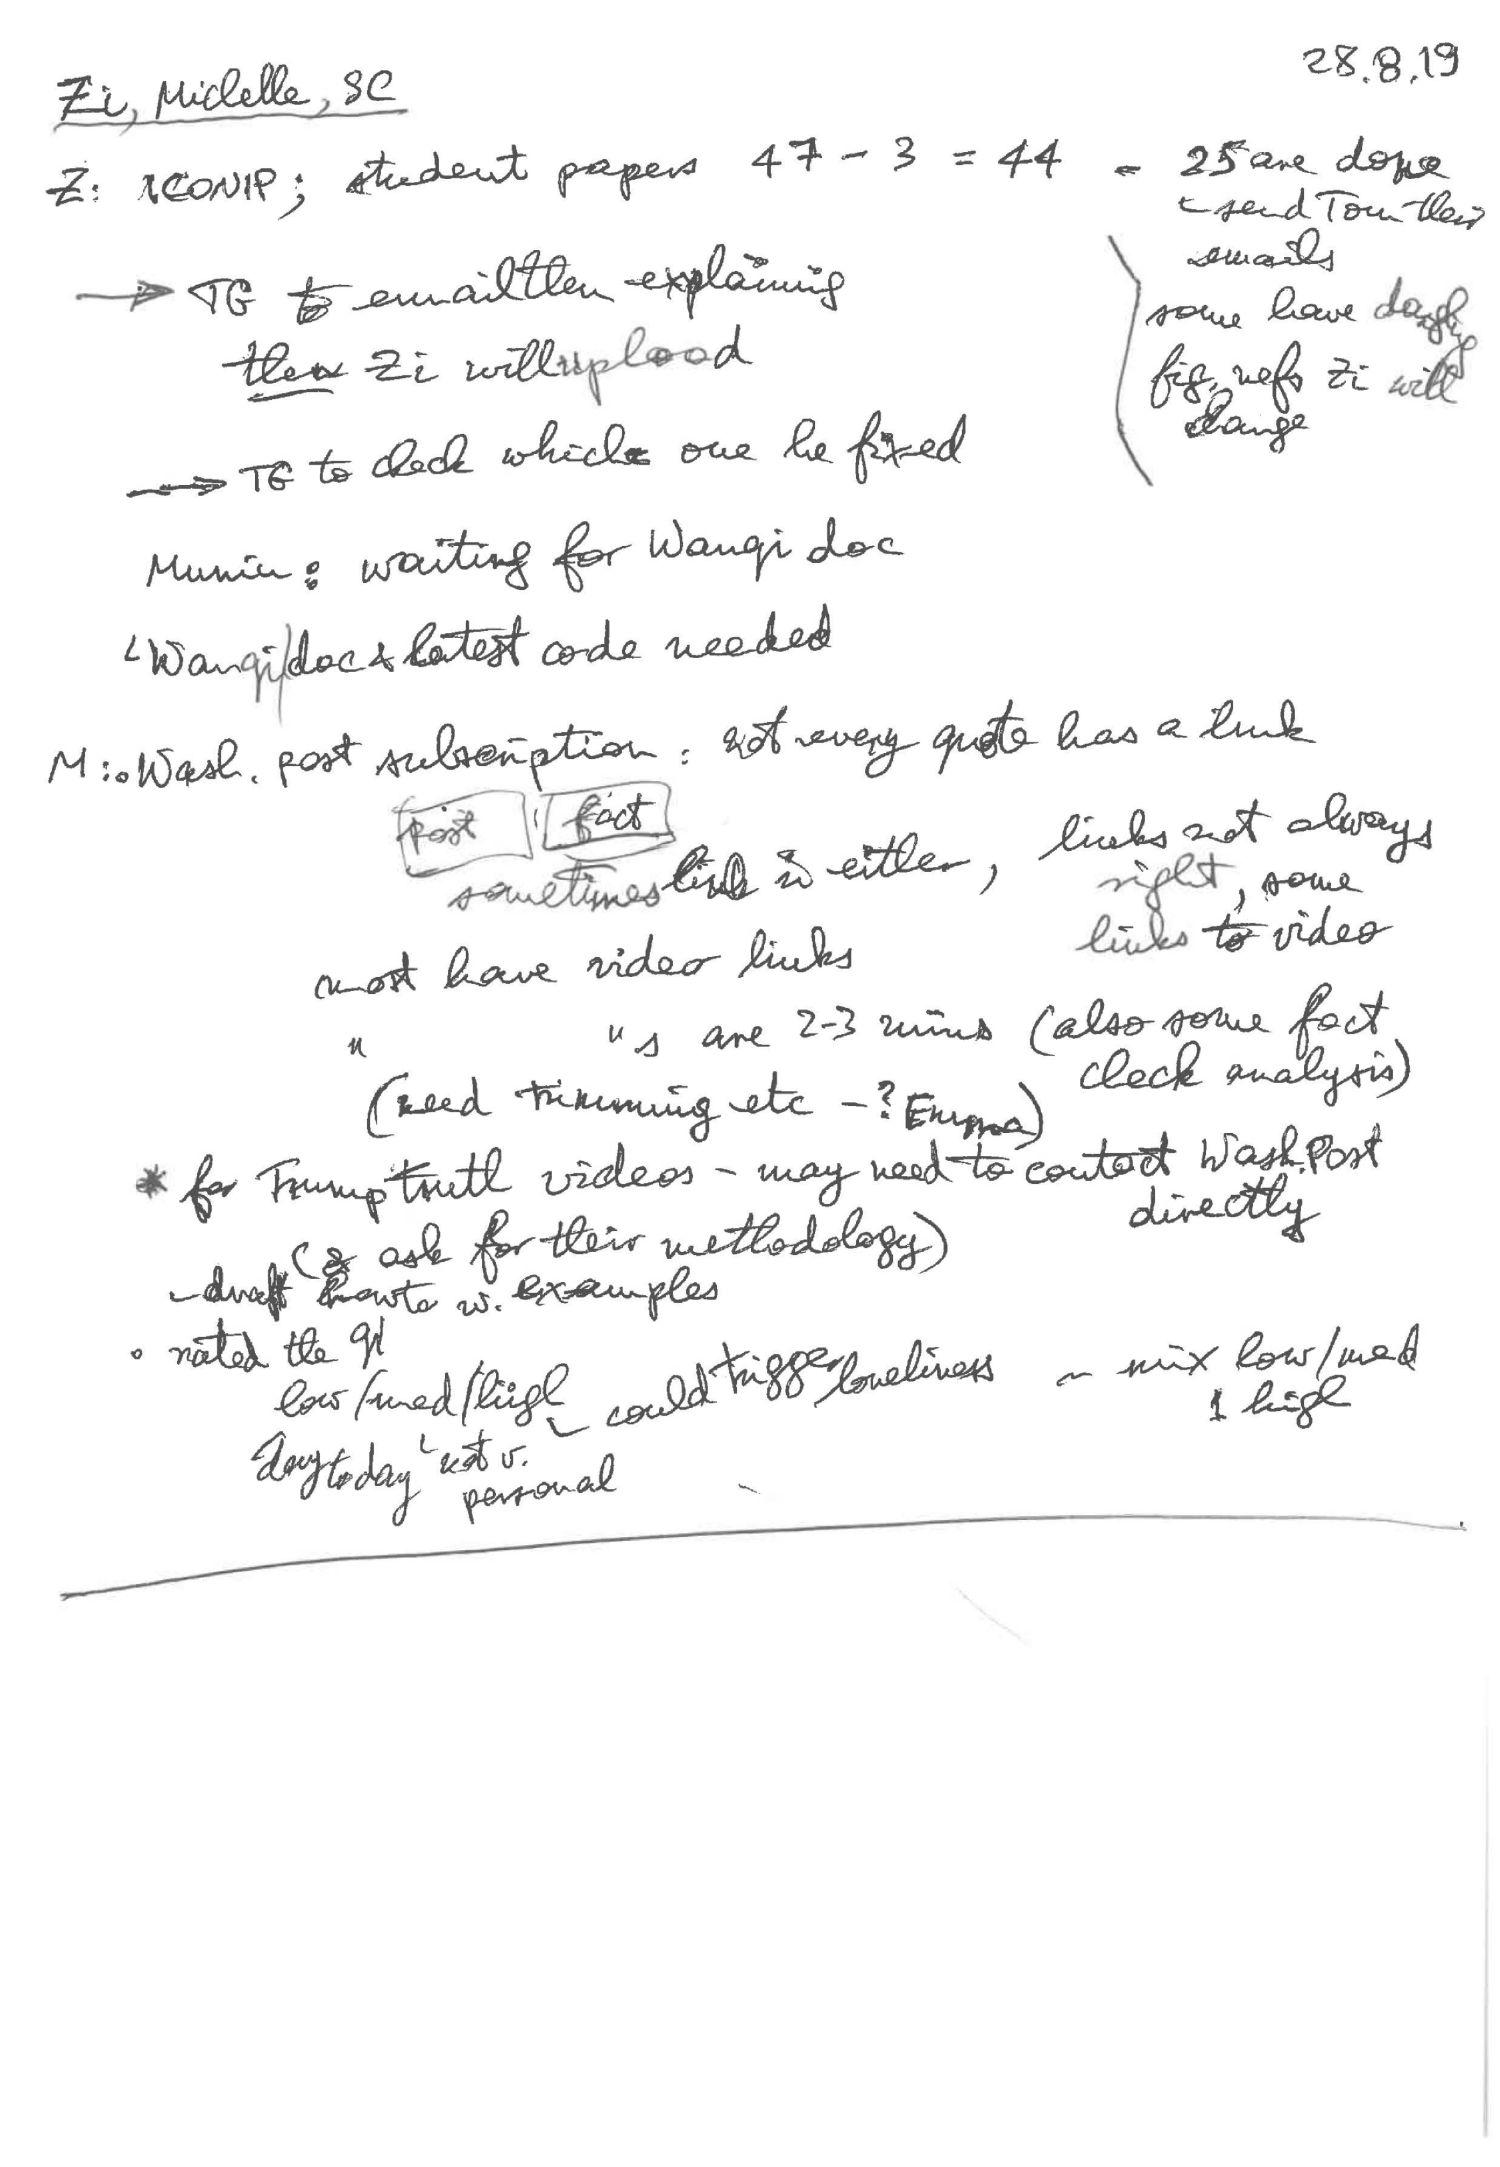 28.8.19
Zi, Michelle, SC
Z: ICONIP; student papers 47 - 3 = 44 - 25 are done
send Tom their
emails
→ TG to email them explaining
some have dodgy
then Zi will upload
fig, refs Zi will
change
→ TG to check which one he fixed
: waiting for Wanqi doc
Wanqi doc & latest code needed
M: Wash. post subscription: not every quote has a link
post fact
sometimes link is either, links not always
right, some
links to video
most have video links
" "s are 2-3 mins (also some fact
check analysis)
(need trimming etc - ? Emma)
* for Trump truth videos - may need to contact Wash. Post
directly
(& ask for their methodology)
- draft howto w. examples
• rated the
low/med/high could trigger loneliness - mix low/med
1 high
day to day not v.
personal